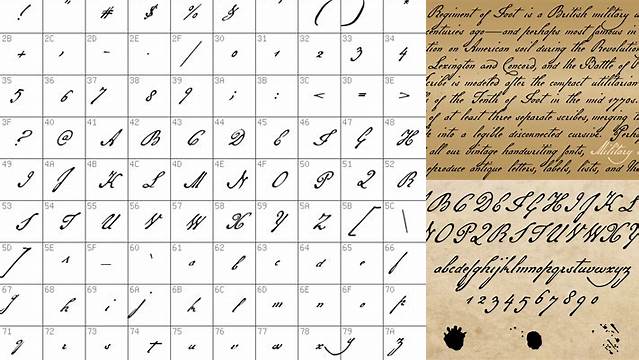 ! " # $ % & ( )
2B 2C 2D 2E 2F 30 31 32 33 34
+ , - . / 0 1 2 3 4
35 36 37 38 39 3A 3B 3C 3D 3E
5 6 7 8 9 : ; < = >
3F 40 41 42 43 44 45 46 47 48
? @ A B C D E F G H
49 4A 4B 4C 4D 4E 4F 50 51 52
I J K L M N O P Q R
53 54 55 56 57 58 59 5A 5B 5C
S T U V W X Y Z [ \
5D 5E 5F 60 61 62 63 64 65 66
] _ ` a b c d e f
67 68 69 6A 6B 6C 6D 6E 6F 70
g h i j k l m n o p
71 72 73 74 75 76 77 78 79 7A
q r s t u v w x y z
Regiment of Foot is a British military
centuries ago—and perhaps most famous in
tion on American soil during the Revolution
Lexington and Concord, and the Battle of
Scribe is modeled after the compact utilitarian
of the Tenth of Foot in the mid 1770s
of at least three separate scribes, merging
into a legible disconnected cursive. Perhaps
all our vintage handwriting fonts, Military
reproduce antique letters, labels, lists, and
A B C D E F G H I J K L
N O P Q R S T U V W X Y
abcdefghijklmnopqrstuvwxyz
1 2 3 4 5 6 7 8 9 0